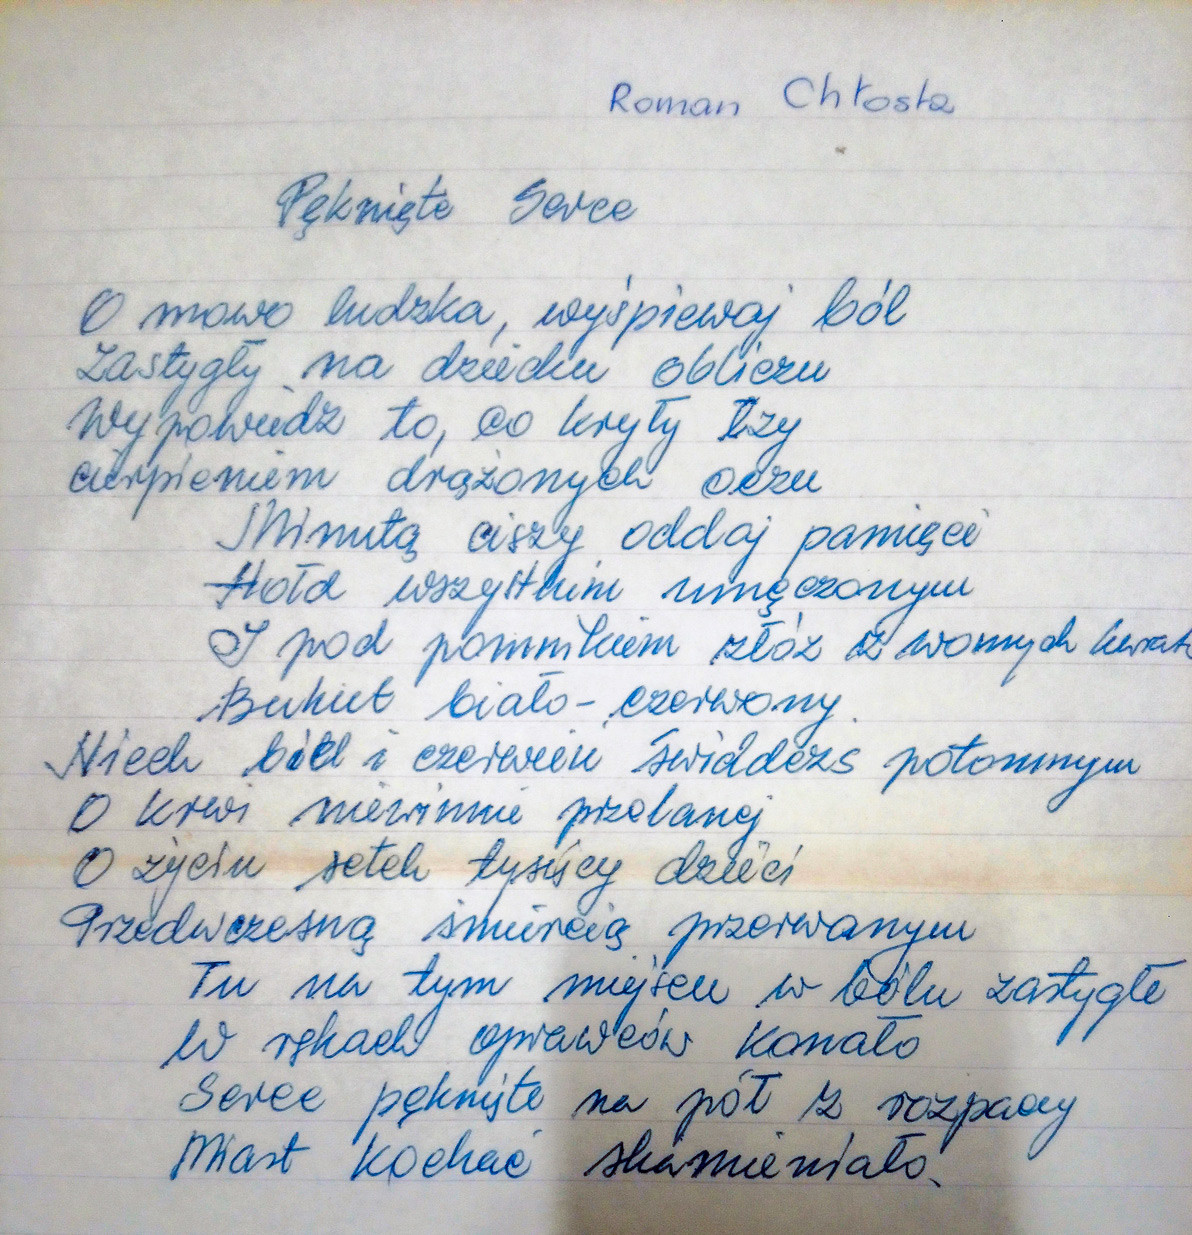 Roman Chłosta
Pęknięte Serce
O mowo ludzka, wyśpiewaj ból
Zastygły na dziecku obliczu
Wypowiedz to, co kryły łzy
cierpieniem drążonych oczu
Minutą ciszy oddaj pamięci
Hołd wszystkim umęczonym
I pod pomnikiem złóż z wonnych
Bukiet biało-czerwony.
Niech biel i czerwień świadczą potomnym
O krwi niewinnie przelanej
O życiu setek tysięcy dzieci
Przedwczesną śmiercią przerwanym
Tu na tym miejscu w bólu zastygłe
W rękach oprawców konało
Serce pęknięte na pół z rozpaczy
Miast kochać skamieniało.